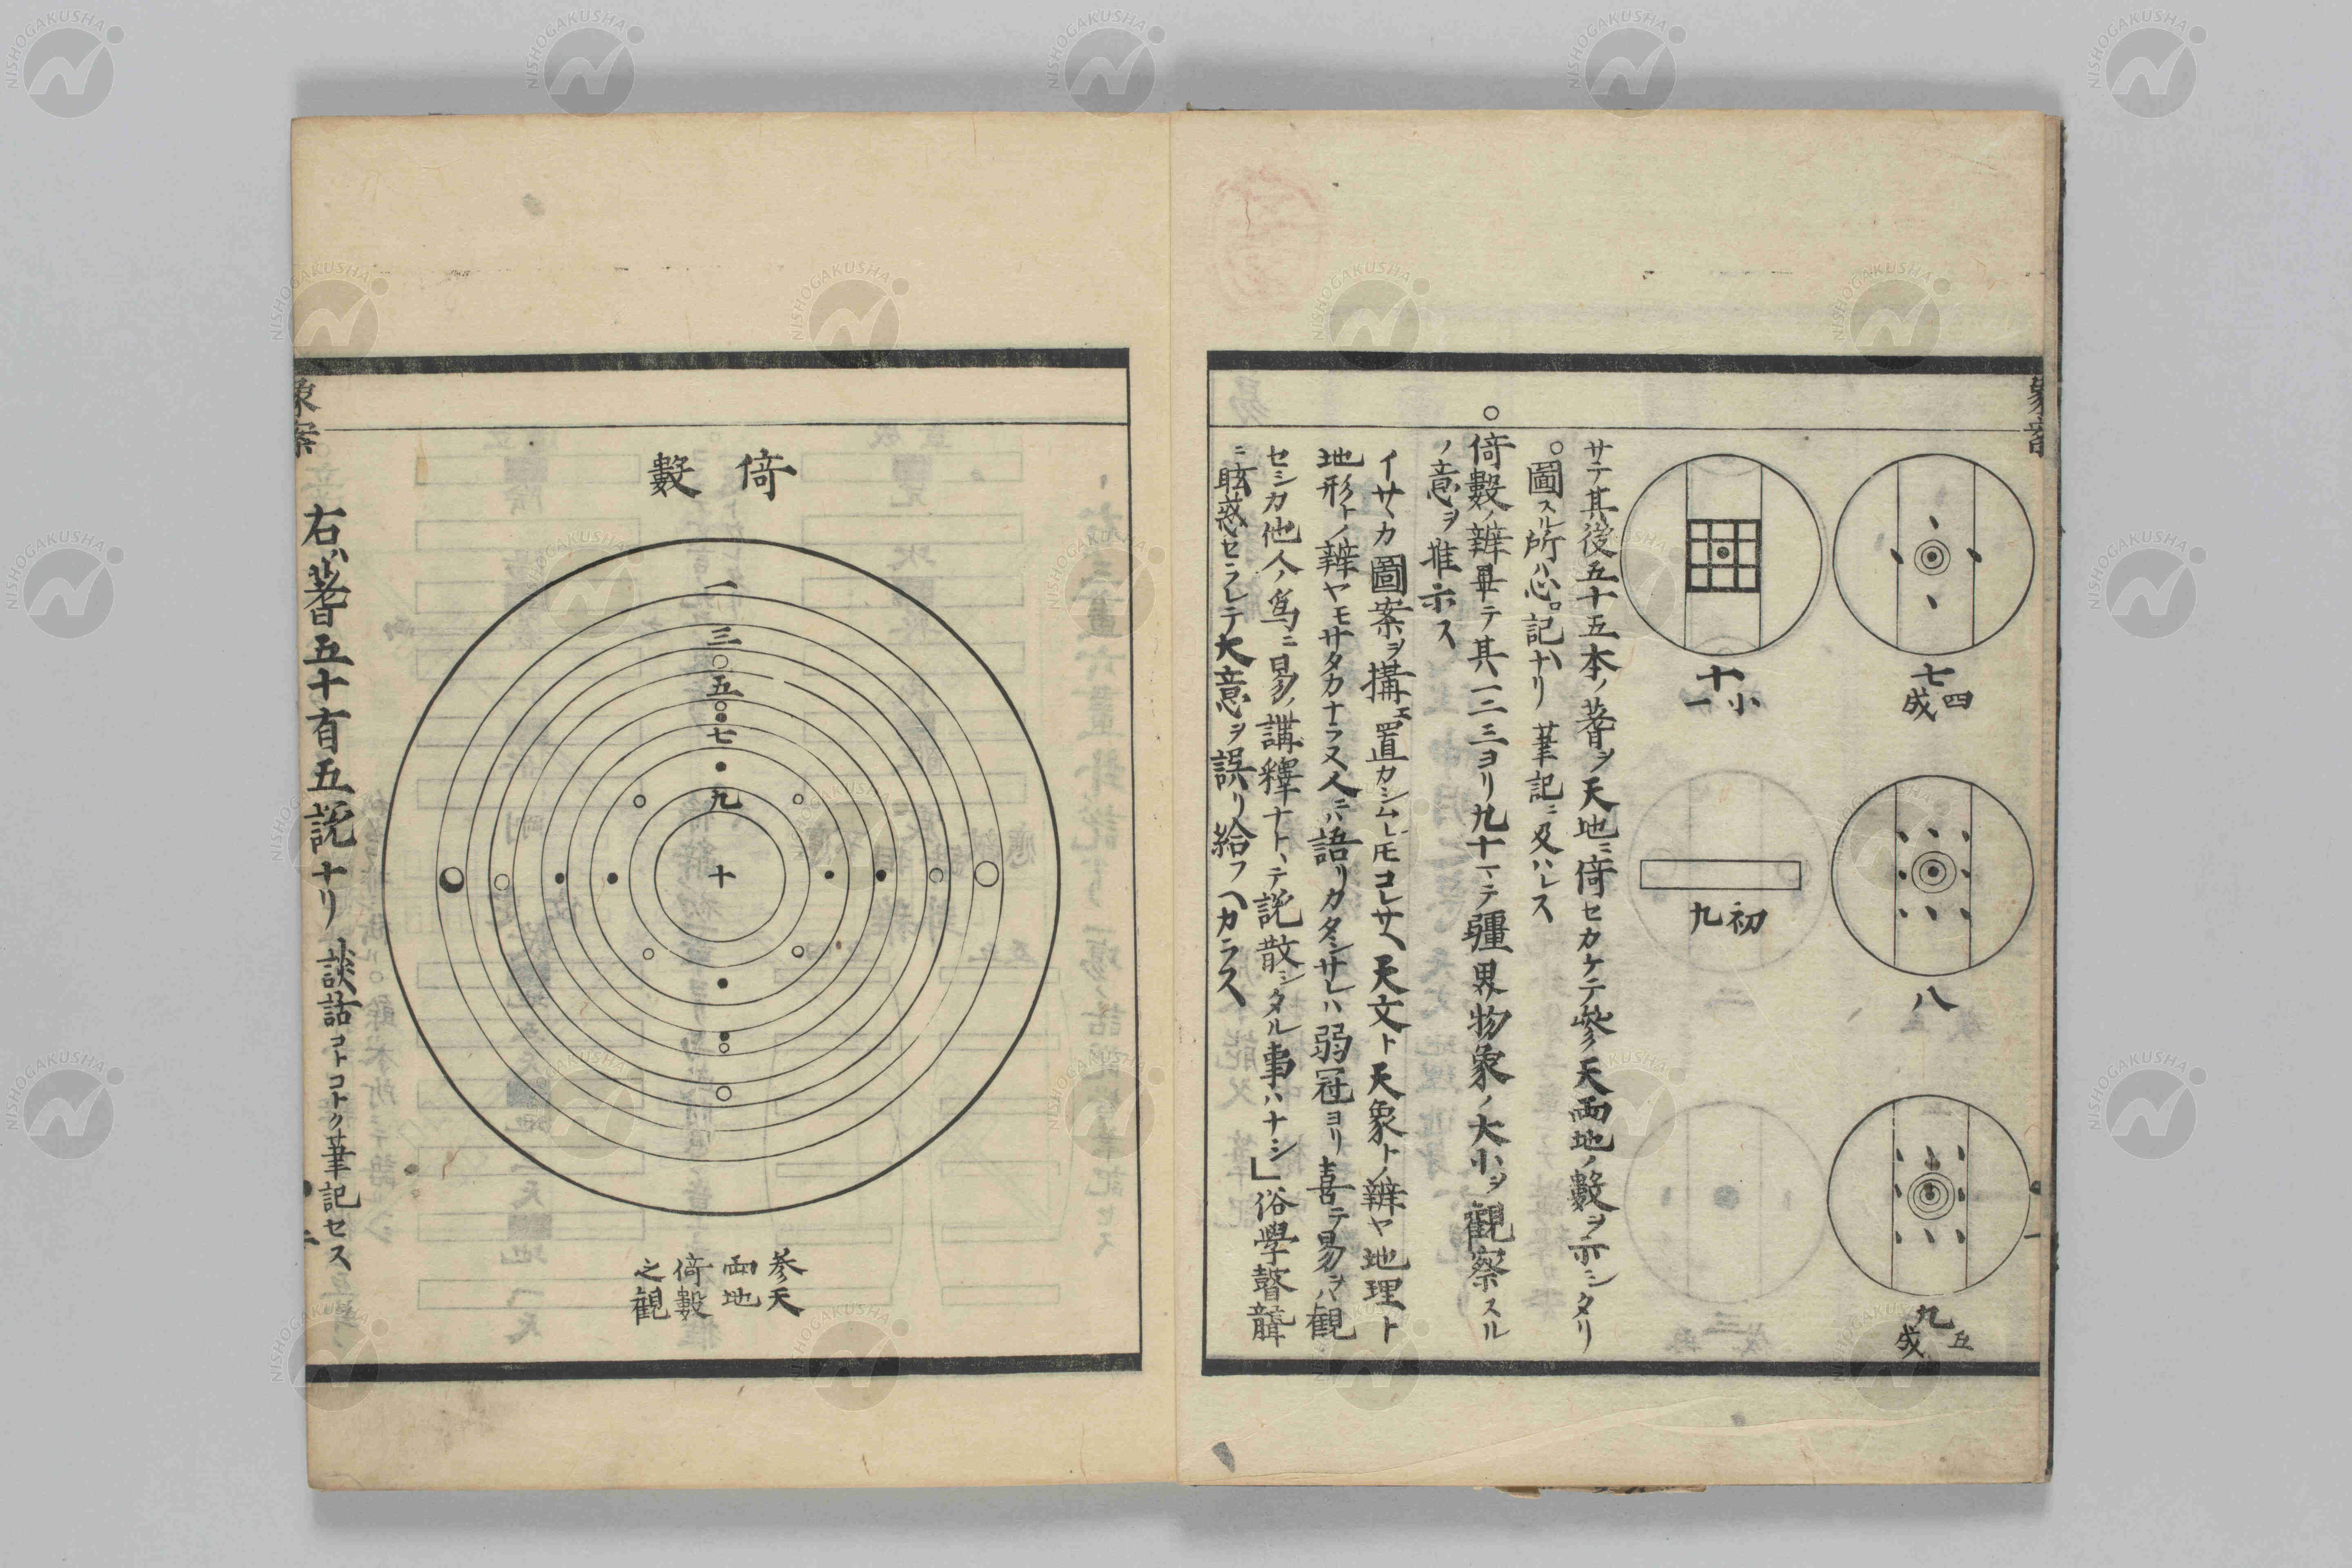 七
四成
八
九
五成
十
小一
初九
サテ其後五十五本ノ蓍ヲ天地ニ倚セカケテ參天兩地ノ數ヲ示シタリ
○圖スル所ハ心ロ記ナリ 筆記ニ及ハレス
○倚數ノ辨畢テ其一二三ヨリ九十マテ疆界物象ノ大小ヲ觀察スル
ノ意ヲ推示ス
イサヽカ圖案ヲ搆エ置カシムレ𪜈コレサヘ天文ト天象トノ辨ヤ地理ト
地形トノ辨ヤモサタカナラヌ人ニハ語リカタシサレハ弱冠ヨリ喜テ易ヲハ觀
セシカ他人ノ爲ニ易ノ講釋ナトヽテ説散シタル事ハナシ」俗學瞽聾
ニ眩惑セラレテ大意ヲ誤リ給フヘカラス
倚數
一
三
五
七
九
十
参天
兩地
倚數
之觀
右ハ蓍五十有五説ナリ 談話コトコトク筆記セス
象案
NISHOGAKUSHA